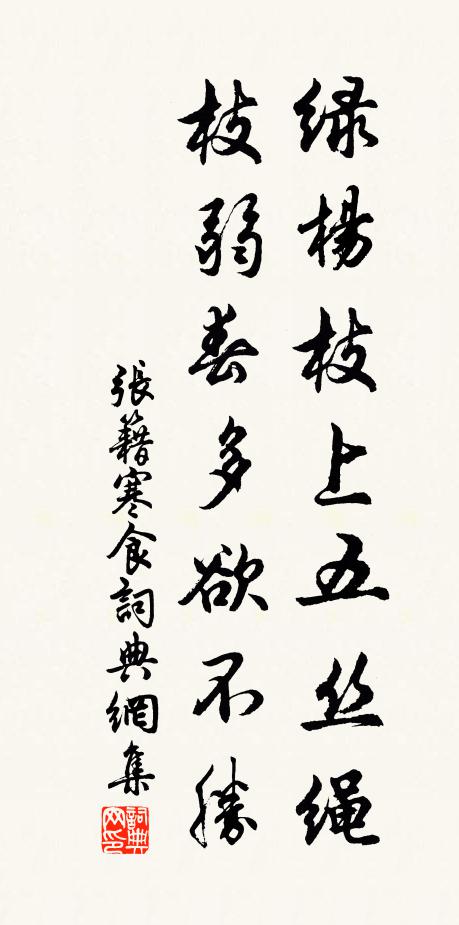 绿杨枝上五丝绳
枝弱春多欲不胜
張籍寒食詞典網集
詞典网印